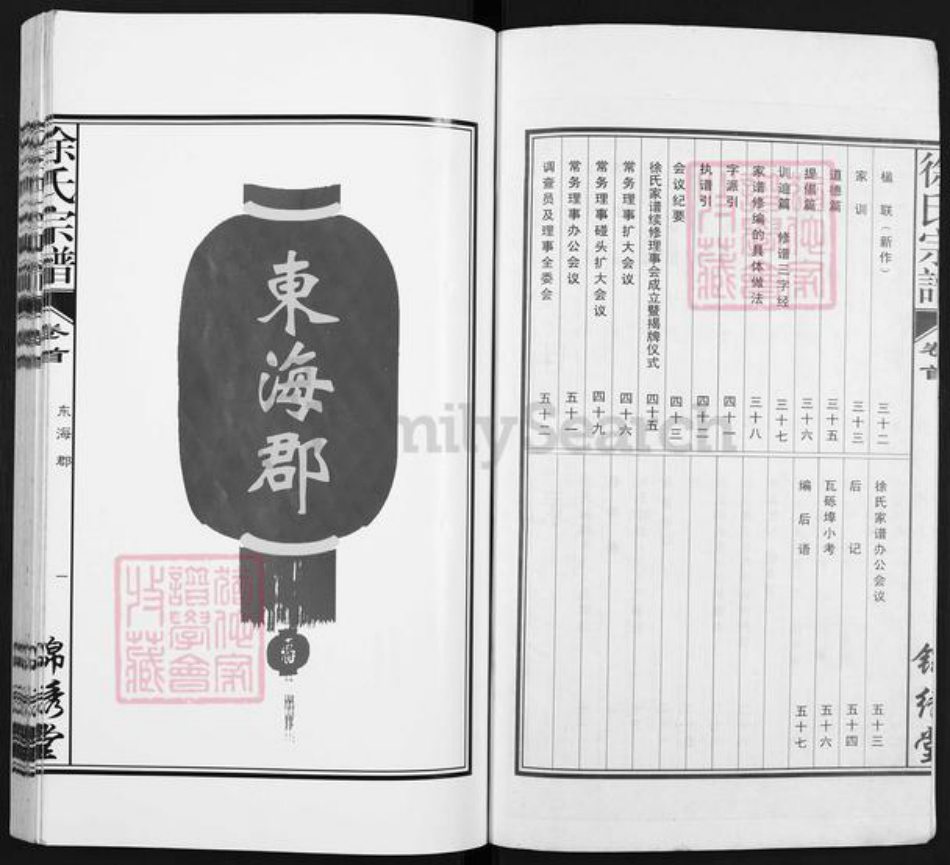 徐氏宗譜
卷首
楹联（新作） 三十二
家训 三十三
道德篇 三十五
提倡篇 三十六
训迪篇 修谱三字经 三十七
家谱修编的具体做法 三十八
字派引 四十一
执谱引 四十一
会议纪要 四十三
徐氏家谱续修理事会成立暨揭牌仪式 四十五
常务理事扩大会议 四十六
常务理事碰头扩大会议 四十九
常务理事办公会议 五十
调查员及理事全委会 五十一
徐氏家谱办公会议 五十三
后记 五十四
瓦砾埠小考 五十六
编后语 五十七
錦绣堂
東海郡
福
徐氏宗譜
卷首
东海郡
一
錦绣堂
譜學會
收藏
FamilySearch